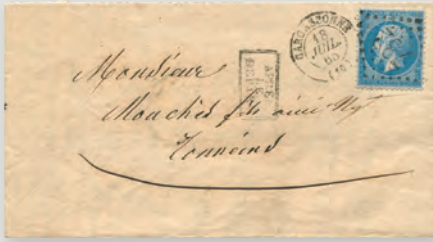 CARCASSONNE
18
JUIL.
65
(10)
APRÈS
LE DÉPART
Monsieur
Mouchès fils aîné Nt
Tonneins